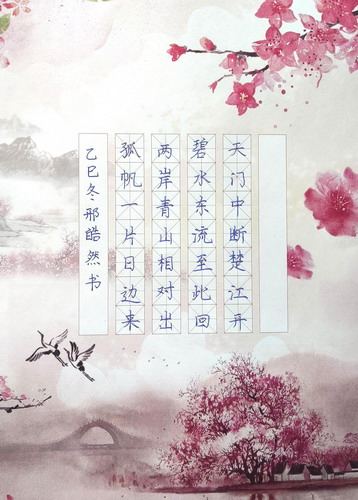 天门中断楚江开
碧水东流至此回
两岸青山相对出
孤帆一片日边来
乙巳冬邢皓然书